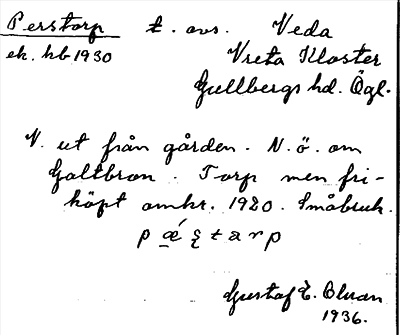 Perstorp t. avs. Veda
ek. kb 1930 Vreta Kloster
Gullbergs hd. Ögl.
N. ut från gården. N.ö. om
Galtbron. Torp men fri-
köpt omkr. 1920. Småbruk.
Gustaf E.
1936.